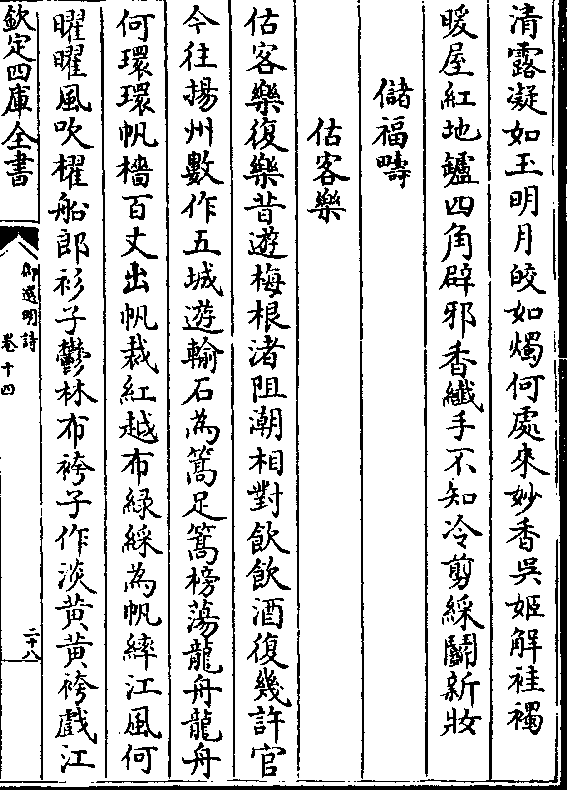 清露凝如玉明月皎如燭何處來妙香吳姬解袿襡
暖屋紅地鑪四角辟邪香纖手不知冷剪綵鬬新妝
儲福疇
估客樂
估客樂復樂昔遊梅根渚阻潮相對飲飲酒復幾許官
今往揚州數作五城遊輸石為篙足篙榜蕩龍舟龍舟
何環環帆檣百丈出帆裁紅越布緑綵為帆繂江風何
曜曜風吹櫂船郎衫子鬱林布袴子作淡黄黄袴戲江
欽定四庫全書
御選明詩
卷十四
二十八